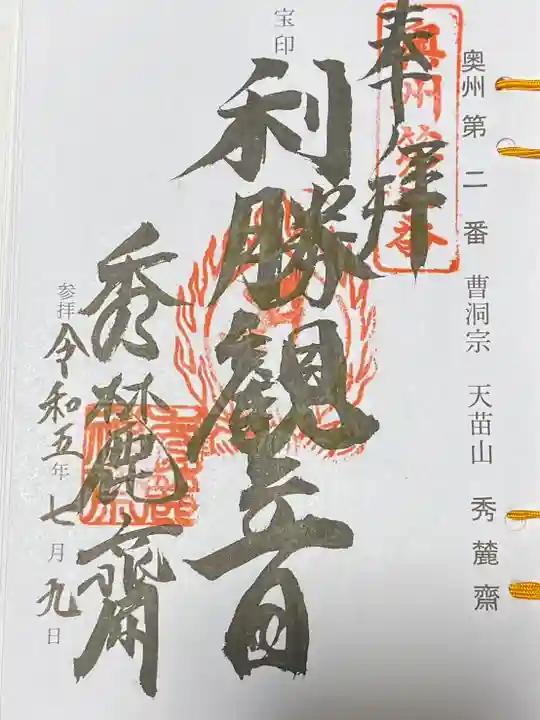 奥州第二番 曹洞宗 天苗山 秀麓齋
奉拝
宝印
利勝観音
秀麓齋
参拝 令和五年七月九日